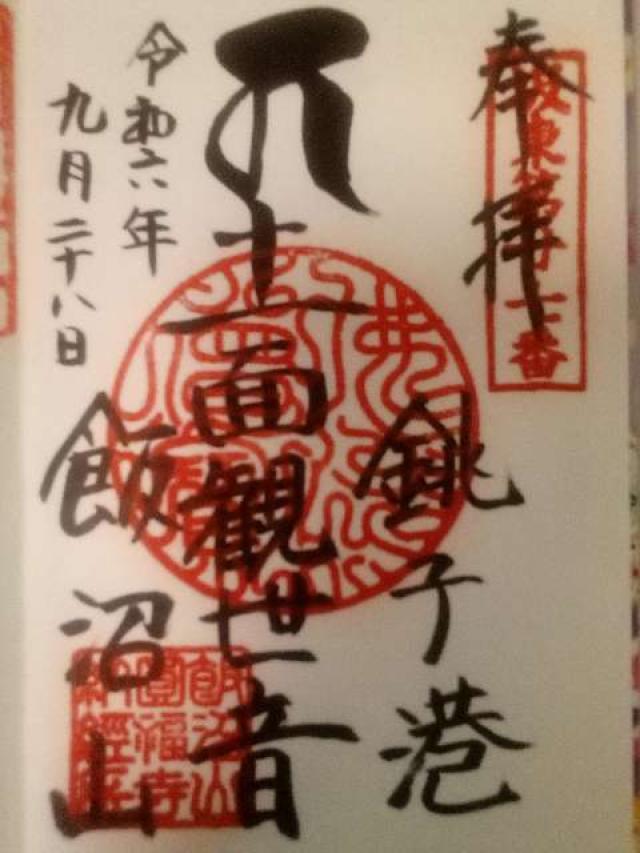 奉拝
坂東第廿七番
銚子港
十一面観世音
飯沼山
令和六年
九月二十八日
飯沼山
圓福寺
納經